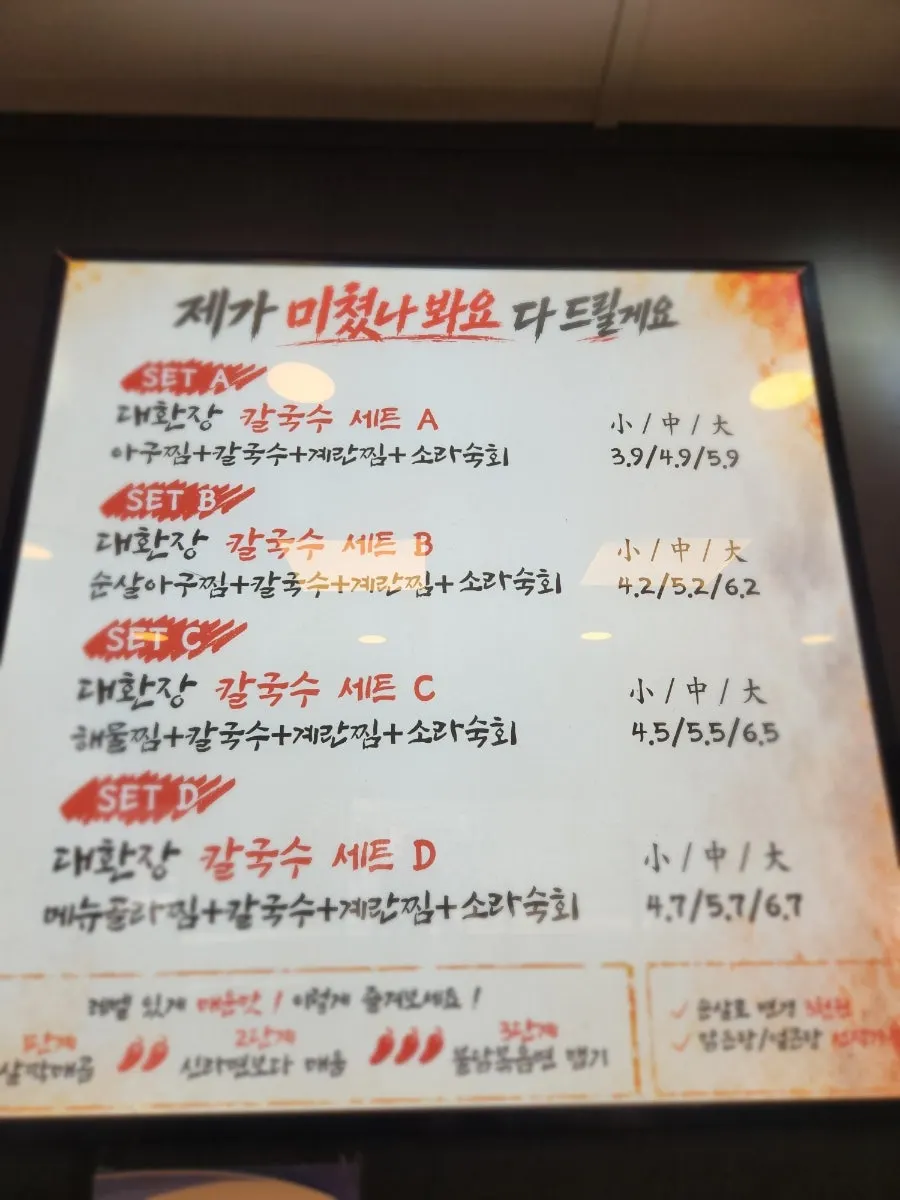 제가 미쳤나 봐요 다 드릴게요
SET A
대환장 칼국수 세트 A 小 / 中 / 大
아구찜+칼국수+계란찜+소라숙회 3.9/4.9/5.9
SET B
대환장 칼국수 세트 B 小 / 中 / 大
순살아구찜+칼국수+계란찜+소라숙회 4.2/5.2/6.2
SET C
대환장 칼국수 세트 C 小 / 中 / 大
해물찜+칼국수+계란찜+소라숙회 4.5/5.5/6.5
SET D
대환장 칼국수 세트 D 小 / 中 / 大
메뉴골라찜+칼국수+계란찜+소라숙회 4.7/5.7/6.7
레벨 있게 매운맛! 이렇게 즐겨보세요!
1단계 2단계 3단계
살짝매콤 신라면보다 매움 불닭볶음면 맵기
순살로 변경
맑은탕/얼큰탕